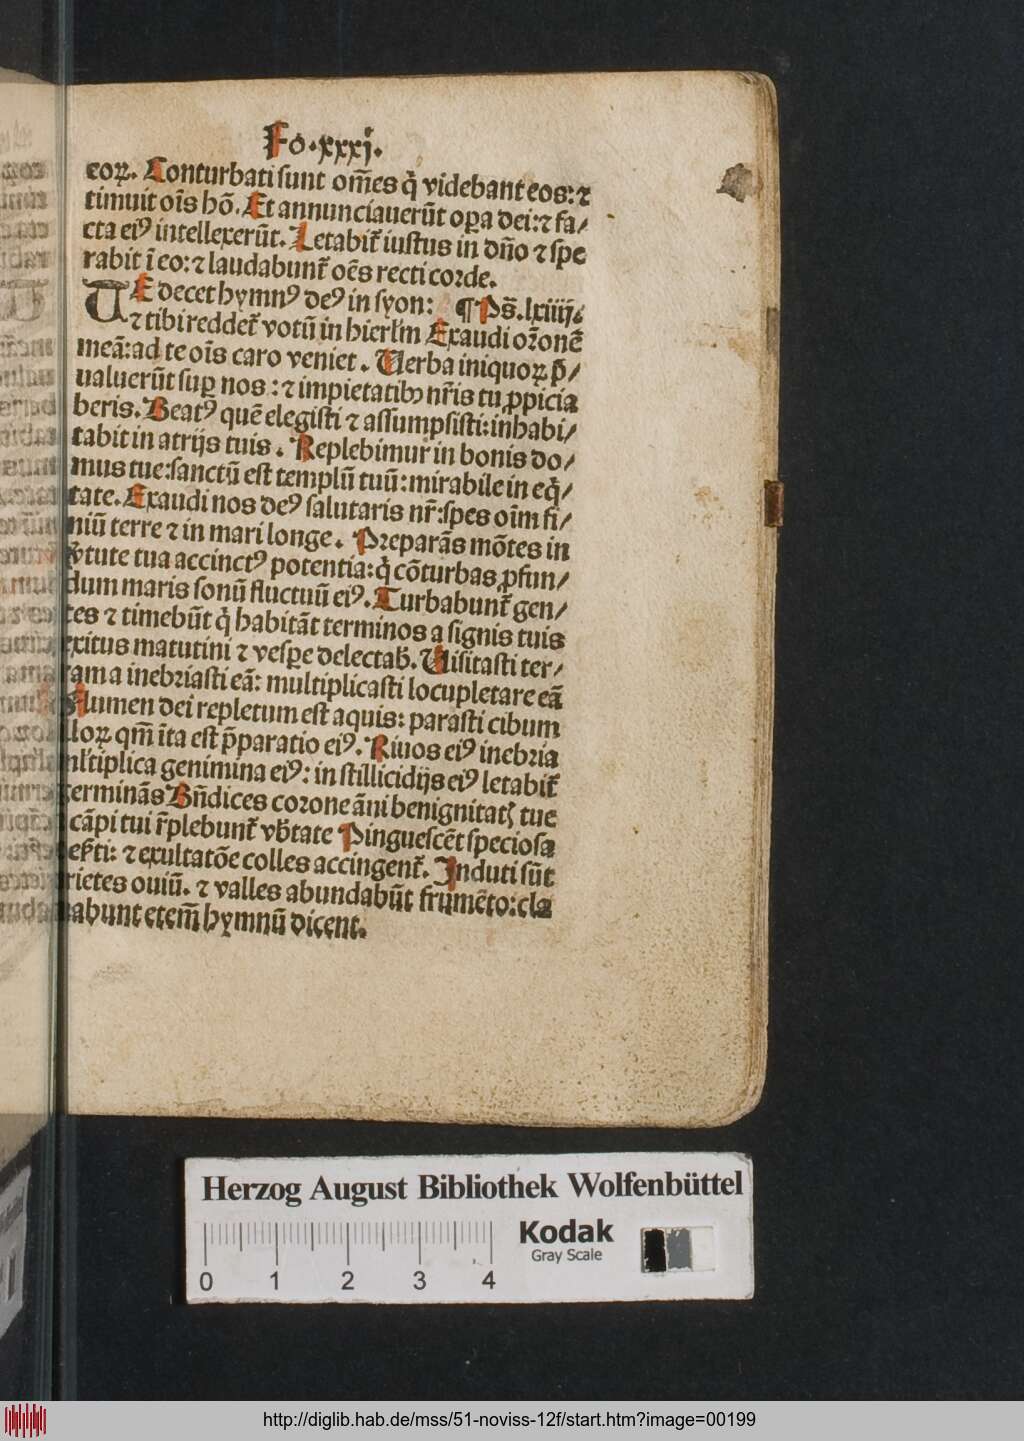 Fo.xxxj.
eoꝝ. Conturbati sunt om̄es q̇ videbant eos: ⁊
timuit oīs hō. Et annunciauerūt oꝑa dei: ⁊ fa/
cta eiꝰ intellexerūt. Letabit᷑ iustus in dn̄o ⁊ spe
rabit ī eo: ⁊ laudabunt᷑ oēs recti corde.
TE decet hymnꝰ deꝰ in syon: ¶ Ps̄. lxiiij.
⁊ tibi reddet᷑ votū in hierl̄m Exaudi or̄onē
meā: ad te oīs caro veniet. Verba iniquoꝝ p̄/
ualuerūt suꝑ nos: ⁊ impietatibꝰ nr̄is tu ꝓpicia
beris. Beatꝰ quē elegisti ⁊ assumpsisti: inhabi/
tabit in atrijs tuis. Replebimur in bonis do/
mus tue: sanctū est templū tuū: mirabile in eq̇/
tate. Exaudi nos deꝰ salutaris nr̄: spes oīm fi/
niū terre ⁊ in mari longe. Preparās mōtes in
v̇tute tua accinctꝰ potentia: q̇ cōturbas ꝓfun/
dum maris sonū fluctuū eiꝰ. Turbabunt᷑ gen/
tes ⁊ timebūt q̇ habitāt terminos a signis tuis
exitus matutini ⁊ vesꝑe delectab̄. Uisitasti ter/
ram a inebriasti eā: multiplicasti locupletare eā
Flumen dei repletum est aquis: parasti cibum
lloꝝ qm̄ īta est p̄paratio eiꝰ. Riuos eiꝰ inebria
ml̄tiplica genimina eiꝰ: in stillicidijs eiꝰ letabit᷑
germinās Bn̄dices corone āni benignitatꝭ tue
cāpi tui r̄plebunt᷑ vb̄tate Pinguescēt speciosa
⁊ exultatōe colles accingent᷑. Induti sūt
rietes ouiū. ⁊ valles abundabūt frumēto: cla
mabunt etem̄ hymnū dicent.
Herzog August Bibliothek Wolfenbüttel
Kodak
Gray Scale
0 1 2 3 4
http://diglib.hab.de/mss/51-noviss-12f/start.htm?image=00199